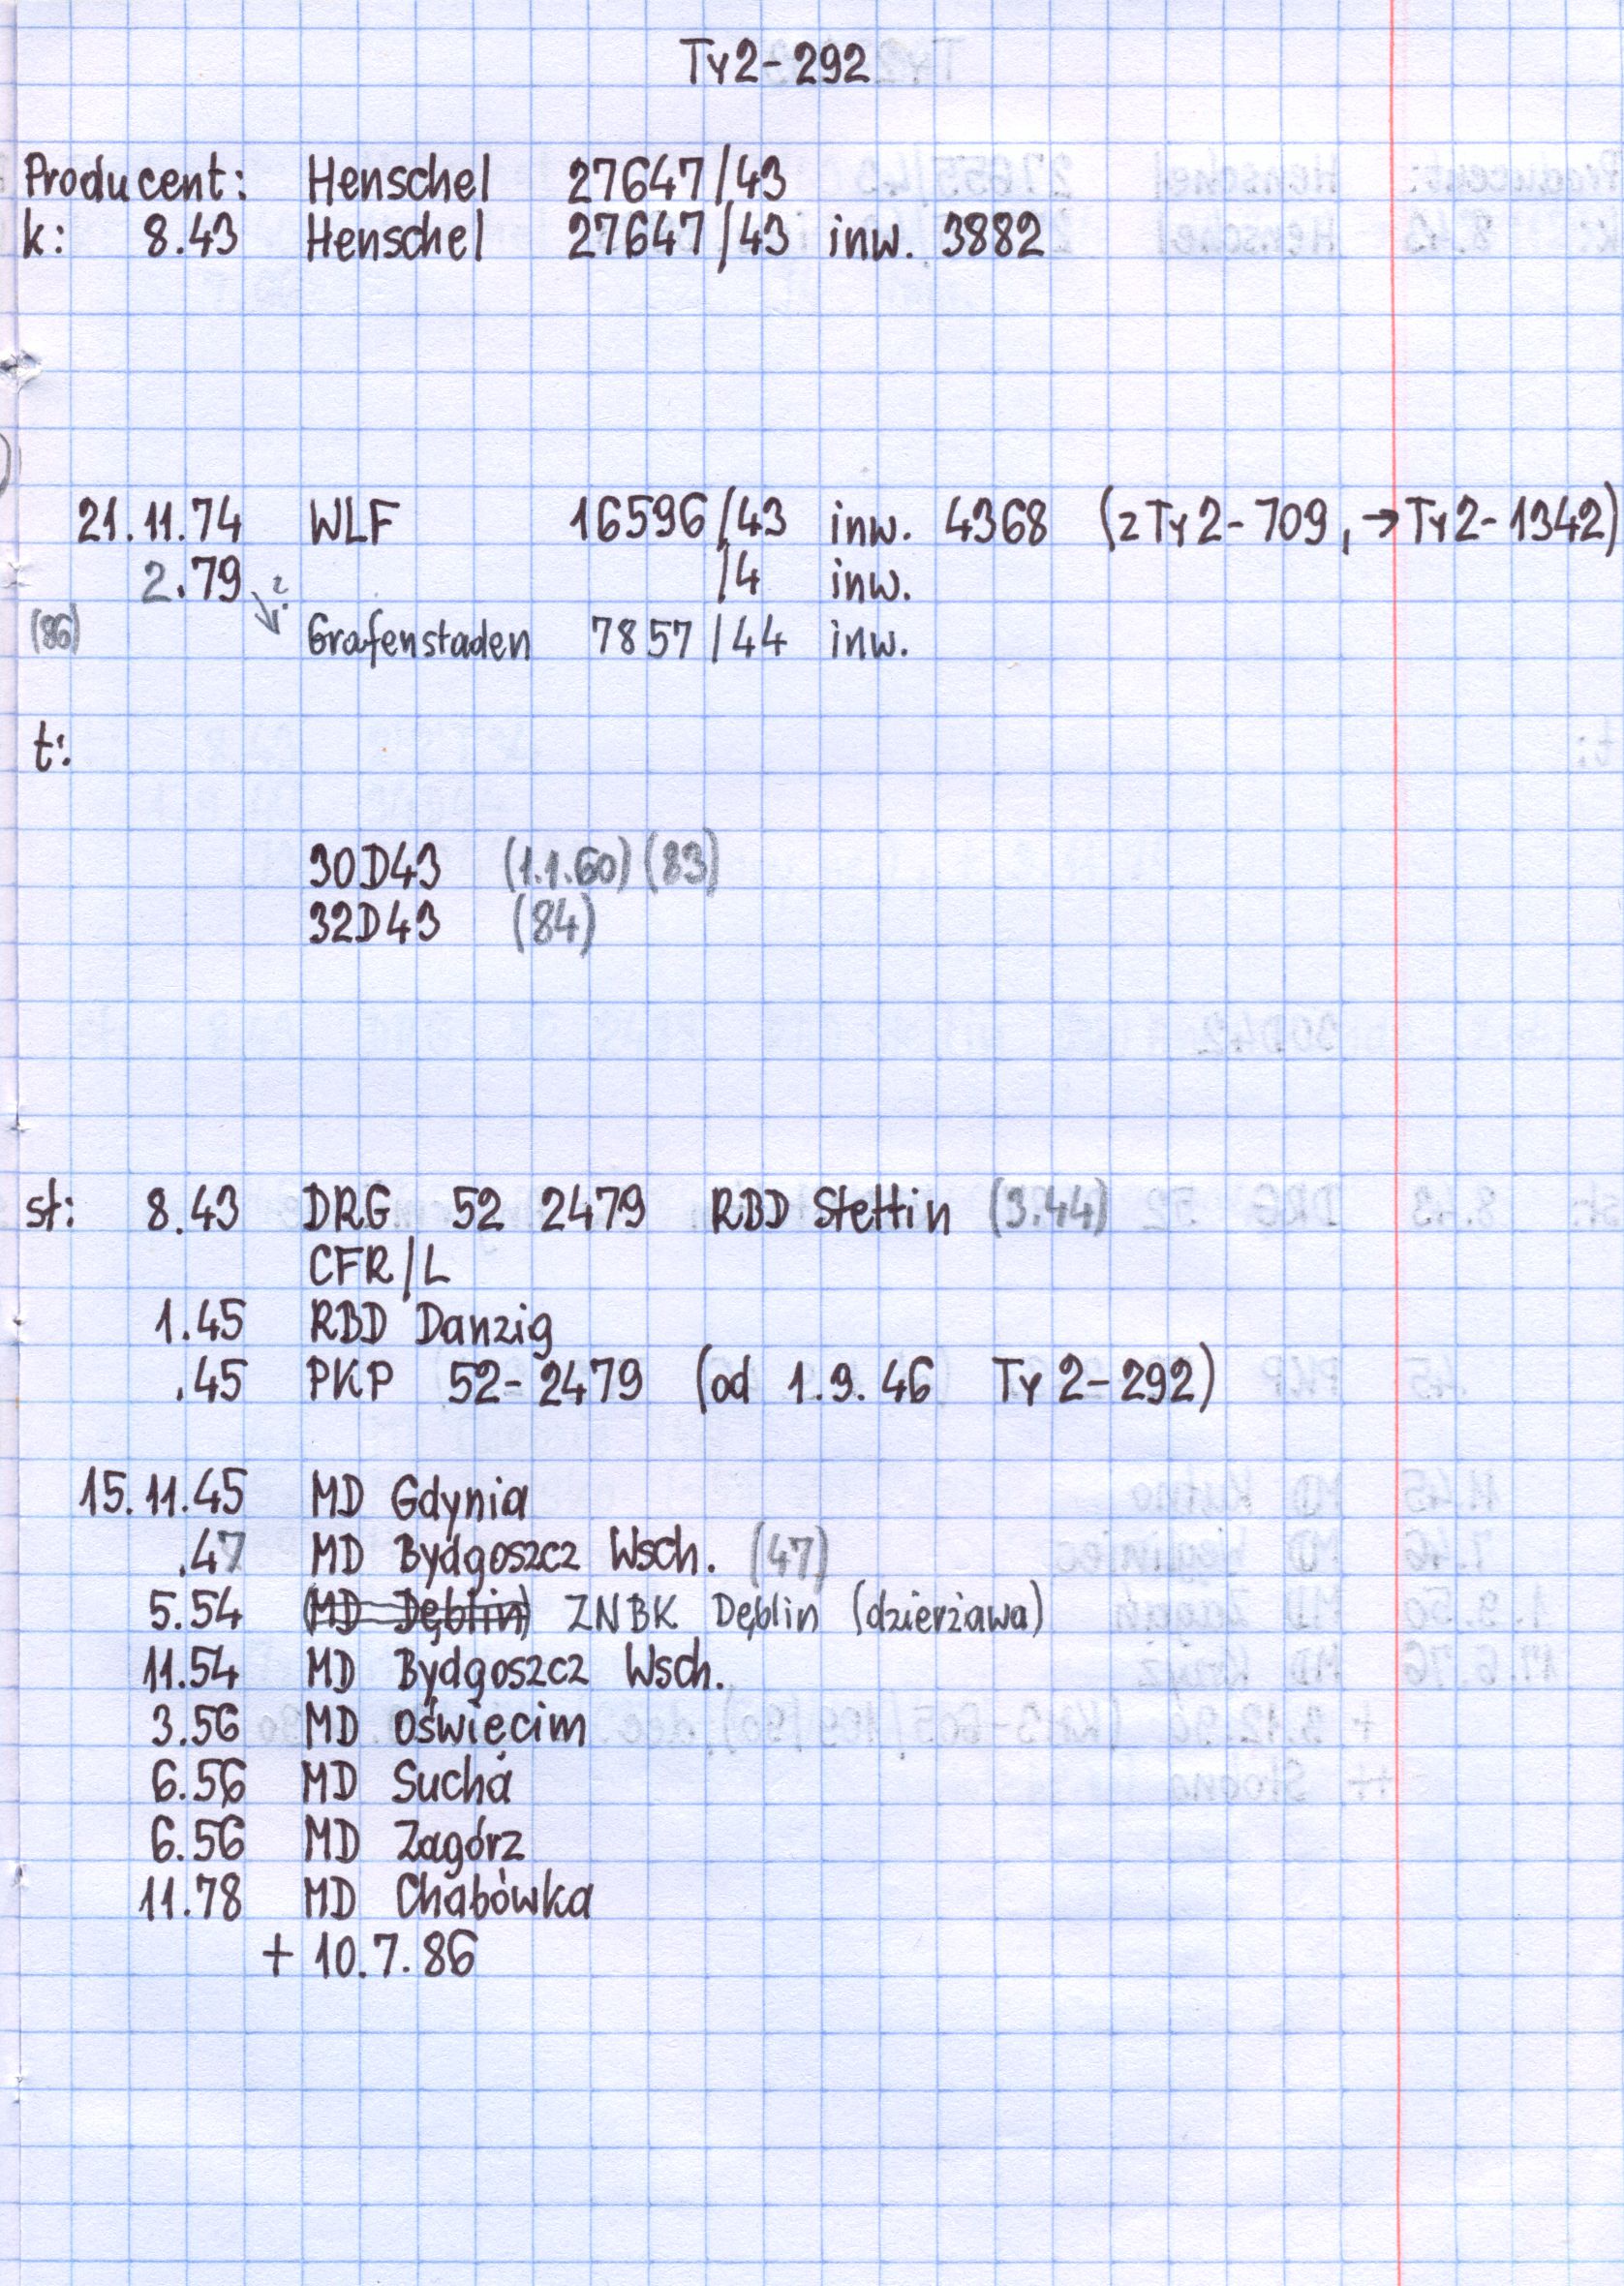 Ty2-292
Producent: Henschel 27647/43
k: 8.43 Henschel 27647/43 inw. 3882
21.11.74 WLF 16596/43 inw. 4368 (z Ty2-709, → Ty2-1342)
2.79 ? /4 inw.
(86) Grafenstaden 7857/44 inw.
t:
30D43 (1.1.60) (83)
32D43 (84)
st: 8.43 DRG 52 2479 RBD Stettin (3.44)
CFR/L
1.45 RBD Danzig
.45 PKP 52-2479 (od 1.9.46 Ty2-292)
15.11.45 MD Gdynia
.47 MD Bydgoszcz Wsch. (47)
5.54 (MD Dęblin) ZNBK Dęblin (dzierżawa)
11.54 MD Bydgoszcz Wsch.
3.56 MD Oświęcim
6.56 MD Sucha
6.56 MD Zagórz
11.78 MD Chabówka
+ 10.7.86